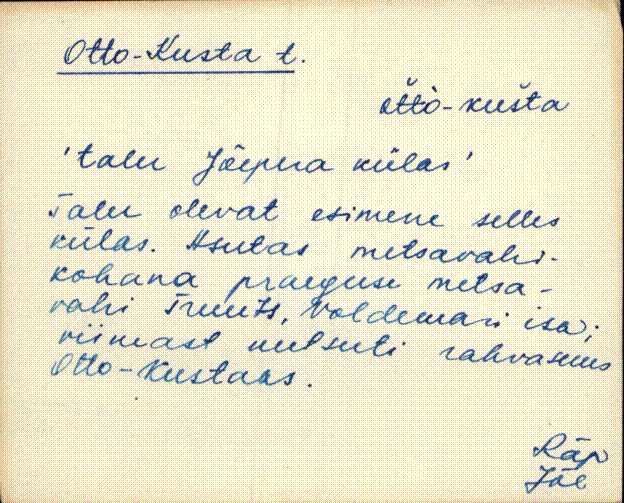 Otto-Kusta t.
ot̆t̆ò-kus̆ta
'talu Jõepera külas'
Talu olevat esimene selles
külas. Asutas metsavahi-
kohana praeguse metsa-
vahi Truuts, Voldemari isa;
viimast kutsuti rahvasuus
Otto-Kustaks.
Räp
Jõe